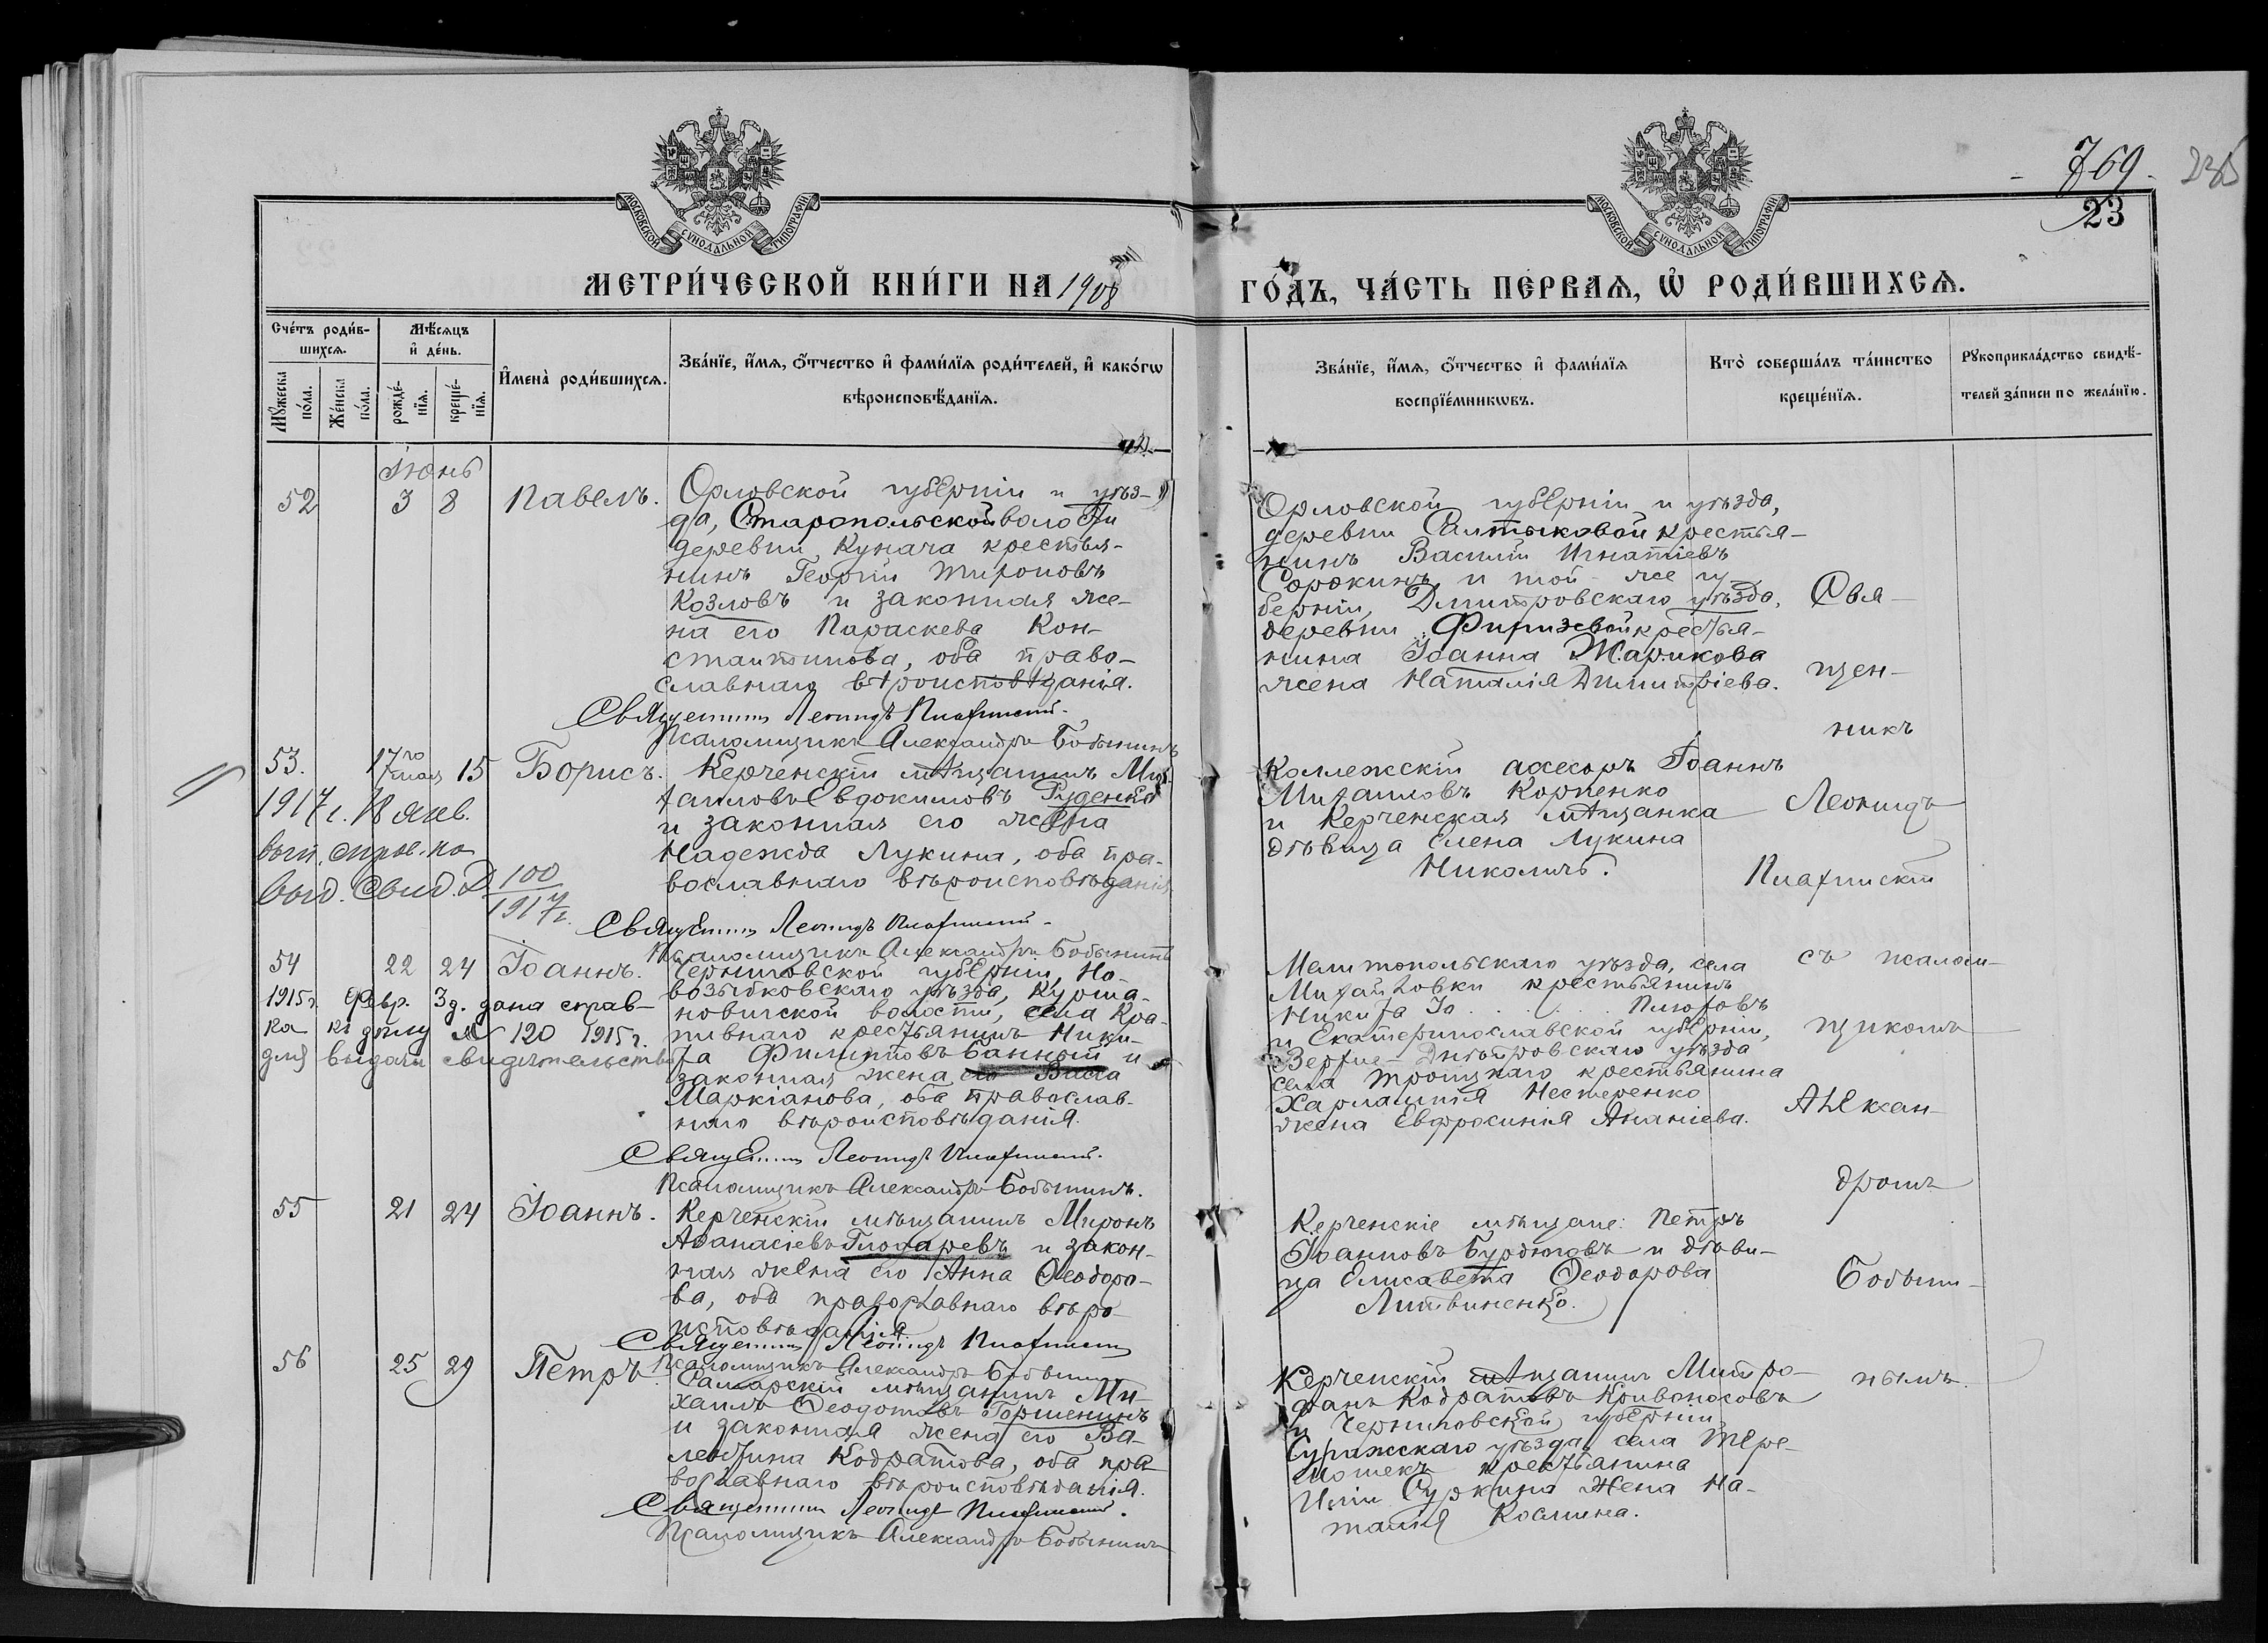 769
23
МОСКОВСКОЙ СУНОДАЛЬНОЙ ТИПОГРАФИИ
МОСКОВСКОЙ СУНОДАЛЬНОЙ ТИПОГРАФИИ
МЕТРИ́ЧЕСКОЙ КНИ́ГИ НА 1908
ГО́ДЪ, ЧА́СТЬ ПЕ́РВАѦ, Ѡ РОДИ́ВШИХСѦ.
Сче́тъ роди́в-
шихсѧ.
Мꙋ́жеска по́ла.
Же́нска по́ла.
Мѣ́сѧцъ
и҆ де́нь.
рожде́-
нїѧ.
креще́-
нїѧ.
И҆мена̀ роди́вшихсѧ.
Зва́нїе, и҆́мѧ, ѻ҆́тчество и҆ фами́лїѧ роди́телей, и҆ како́гѡ
вѣроисповѣ́данїѧ.
Зва́нїе, и҆́мѧ, ѻ҆́тчество и҆ фами́лїѧ
воспрїе́мникѡвъ.
Кто̀ соверша́лъ та́инство
креще́нїѧ.
Рꙋкоприкла́дство свидѣ́-
телей за́писи по жела́нїю.
Іюнь
52 3 8 Павелъ.
Орловской губерніи и уѣз-
да, Старопольской волости
деревни Кунача крестья-
нинъ Георгій Мироновъ
Козловъ и законная же-
на его Параскева Кон-
стантинова, оба право-
славнаго вѣроисповѣданія.
Священникъ Леонидъ
Псаломщикъ Александръ Бобынинъ
Орловской губерніи и уѣзда,
деревни Салтыковой крестья-
нинъ Василій Игнатіевъ
Сорокинъ и той-же гу
берніи, Дмитровскаго уѣзда,
деревни крестья-
нина Іоанна Жарикова
жена Наталія Димитріева.
53. 17го мая 15 Борисъ.
1917 г. 18 янв.
выд. свид. № 100
1917 г.
Керченскій мѣщанинъ Ми
хаиловъ Евдокимовъ Руденко
и законная его жена
Надежда Лукина, оба пра-
вославнаго вѣроисповѣданія
Священникъ Леонидъ
Псаломщикъ Александръ Бобынинъ
Коллежскій асесоръ Іоаннъ
Михаиловъ Корпенко
и Керченская мѣщанка
дѣвица Елена Лукина
54 22 24 Іоаннъ.
1915 г. Февр. 3 д. дана справ-
ка къ дѣлу № 120 1915 г.
для выдачи свидѣтельства
Черниговской губерніи, Но-
возыбковскаго уѣзда,
новичской волости, села Кра-
пивнаго крестьянинъ Ники-
та Филипповъ Банный и
законная жена его Васса
Маркіанова, оба православ-
наго вѣроисповѣданія.
Священникъ Леонидъ
Псаломщикъ Александръ Бобынинъ.
Мелитопольскаго уѣзда, села
Михайловки крестьянинъ
Никита
и Екатеринославской губерніи,
Верхне-Днѣпровскаго уѣзда
села Троицкаго крестьянина
Харлампія Нестеренко
жена Евфросинія Ананіева.
55 21 24 Іоаннъ.
Керченскій мѣщанинъ Миронъ
Аѳанасіевъ и закон-
ная жена его Анна Ѳеодоро-
ва, оба православнаго вѣро
исповѣданія.
Священникъ Леонидъ
Псаломщикъ Александръ Бобынинъ
Керченскіе мѣщане: Петръ
Іоанновъ Бурдюговъ и дѣви-
ца Елисавета Ѳеодорова
Литвиненко.
56 25 29 Петръ
Самарскій мѣщанинъ Ми-
хаилъ Ѳеодотовъ Горшенинъ
и законная жена его Ва-
лентина Кодратова, оба пра
вославнаго вѣроисповѣданія.
Священникъ Леонидъ
Псаломщикъ Александръ Бобынинъ
Керченскій мѣщанинъ Митро-
фанъ Кодратовъ Кривоносовъ
и Черниговской губерніи,
Суражскаго уѣзда, села
крестьянина
Суркина жена На-
талія Космина.
Свя-
щен-
никъ
Леонидъ
съ псалом-
щикомъ
Алексан-
дромъ
Бобыни-
нымъ.